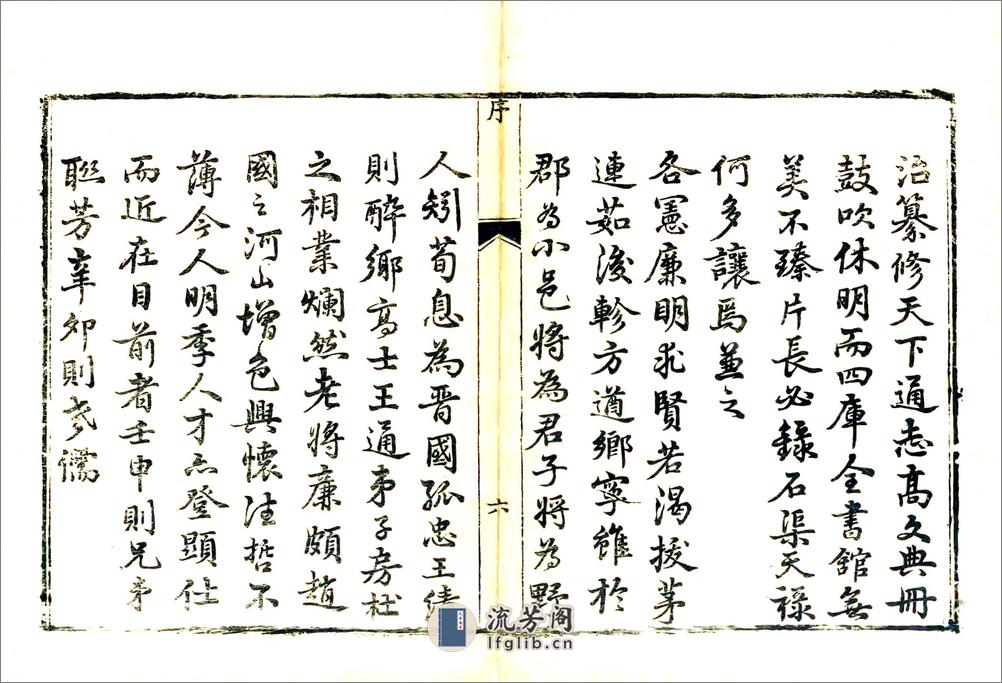 治纂修天下通志高文典冊
鼓吹休明而四庫全書館無
美不臻片長必錄石渠天祿
何多讓焉兼之
各憲廉明求賢若渴拔茅
連茹後軫方遒鄉寧雖於
郡為小邑將為君子將為野
序
六
人矧荀息為晉國孤忠王績
則醉鄉高士王通弟子房杜
之相業爛然老將廉頗趙
國之河山增色興懷往哲不
薄今人明季人才亦登顯仕
而近在目前者壬申則兄弟
聯芳辛卯則耆儒
流芳阁
lfglib.cn